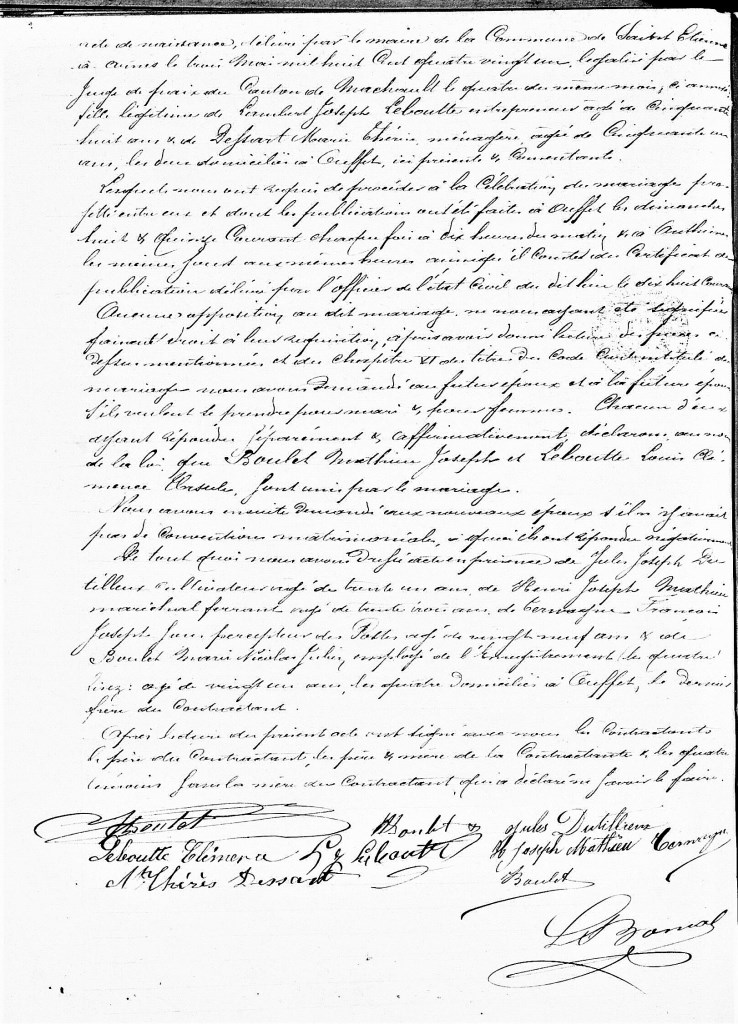 acte de naissance, délivré par le maire de la Commune de Saint Etienne
à arnes le trois Mai mil huit Cent quatre vingt un, légalisé par le
Juge de paix du Canton de Machault le quatre du même mois, ci annexé
fille légitime de Lambert Joseph Leboutte entrepreneur agé de Cinquante
huit ans & de Dessart Marie Thérèse, ménagère agée de Cinquante un
ans, les deux domiciliés à Ouffet, ici présents & Consentants.
Lesquels nous ont requis de procéder à la Célébration du mariage pro-
jetté entre eux et dont les publications ont été faites à Ouffet les dimanches
huit & quinze Courant chaque fois à dix heures du matin, & à Anthisnes
les mêmes jours aux mêmes heures ainsi qu'il Conste du Certificat de
publication délivré par l'officier de l'état Civil du dit lieu le dix huit Courant
Aucune opposition au dit mariage ne nous ayant été signifiée
faisant droit à leur requisition, après avoir donné lecture des pièces ci
dessus mentionnées et du chapitre VI du titre du Code Civil intitulé du
mariage nous avons demandé au futur époux et à la future épouse
s'ils veulent se prendre pour mari & pour femme. Chacun d'eux
ayant répondu séparément & affirmativement, déclarons au nom
de la loi, que Boulet Mathieu Joseph et Leboutte Louise Clé-
mence Ursule, sont unis par le mariage.
Nous avons ensuite demandé aux nouveaux époux s'il n'y avait
pas de Conventions matrimoniales, à quoi ils ont répondu négativement
De tout quoi nous avons dressé acte en présence de Jules Joseph Du-
tilleux cultivateur agé de trente un ans, de Henri Joseph Mathieu
maréchal ferrant agé de trente trois ans, de Cornesque François
Joseph percepteur des Postes agé de vingt neuf ans & de
Boulet Marie Nicolas Julien, employé de l'Enregistrement le quatre
lisez: agé de vingt un ans, les quatre domiciliés à Ouffet, le dernier
frère du Contractant.
Après lecture du présent acte ont signé avec nous les Contractants
le père du Contractant, les père & mère de la Contractante & les quatre
témoins sauf la mère du Contractant qui a déclaré ne savoir le faire.
Boulet Boulet Jules Dutillieux
Leboutte Clémence L J Leboutte H Joseph Mathieu
M Thérèse Dessart Boulet